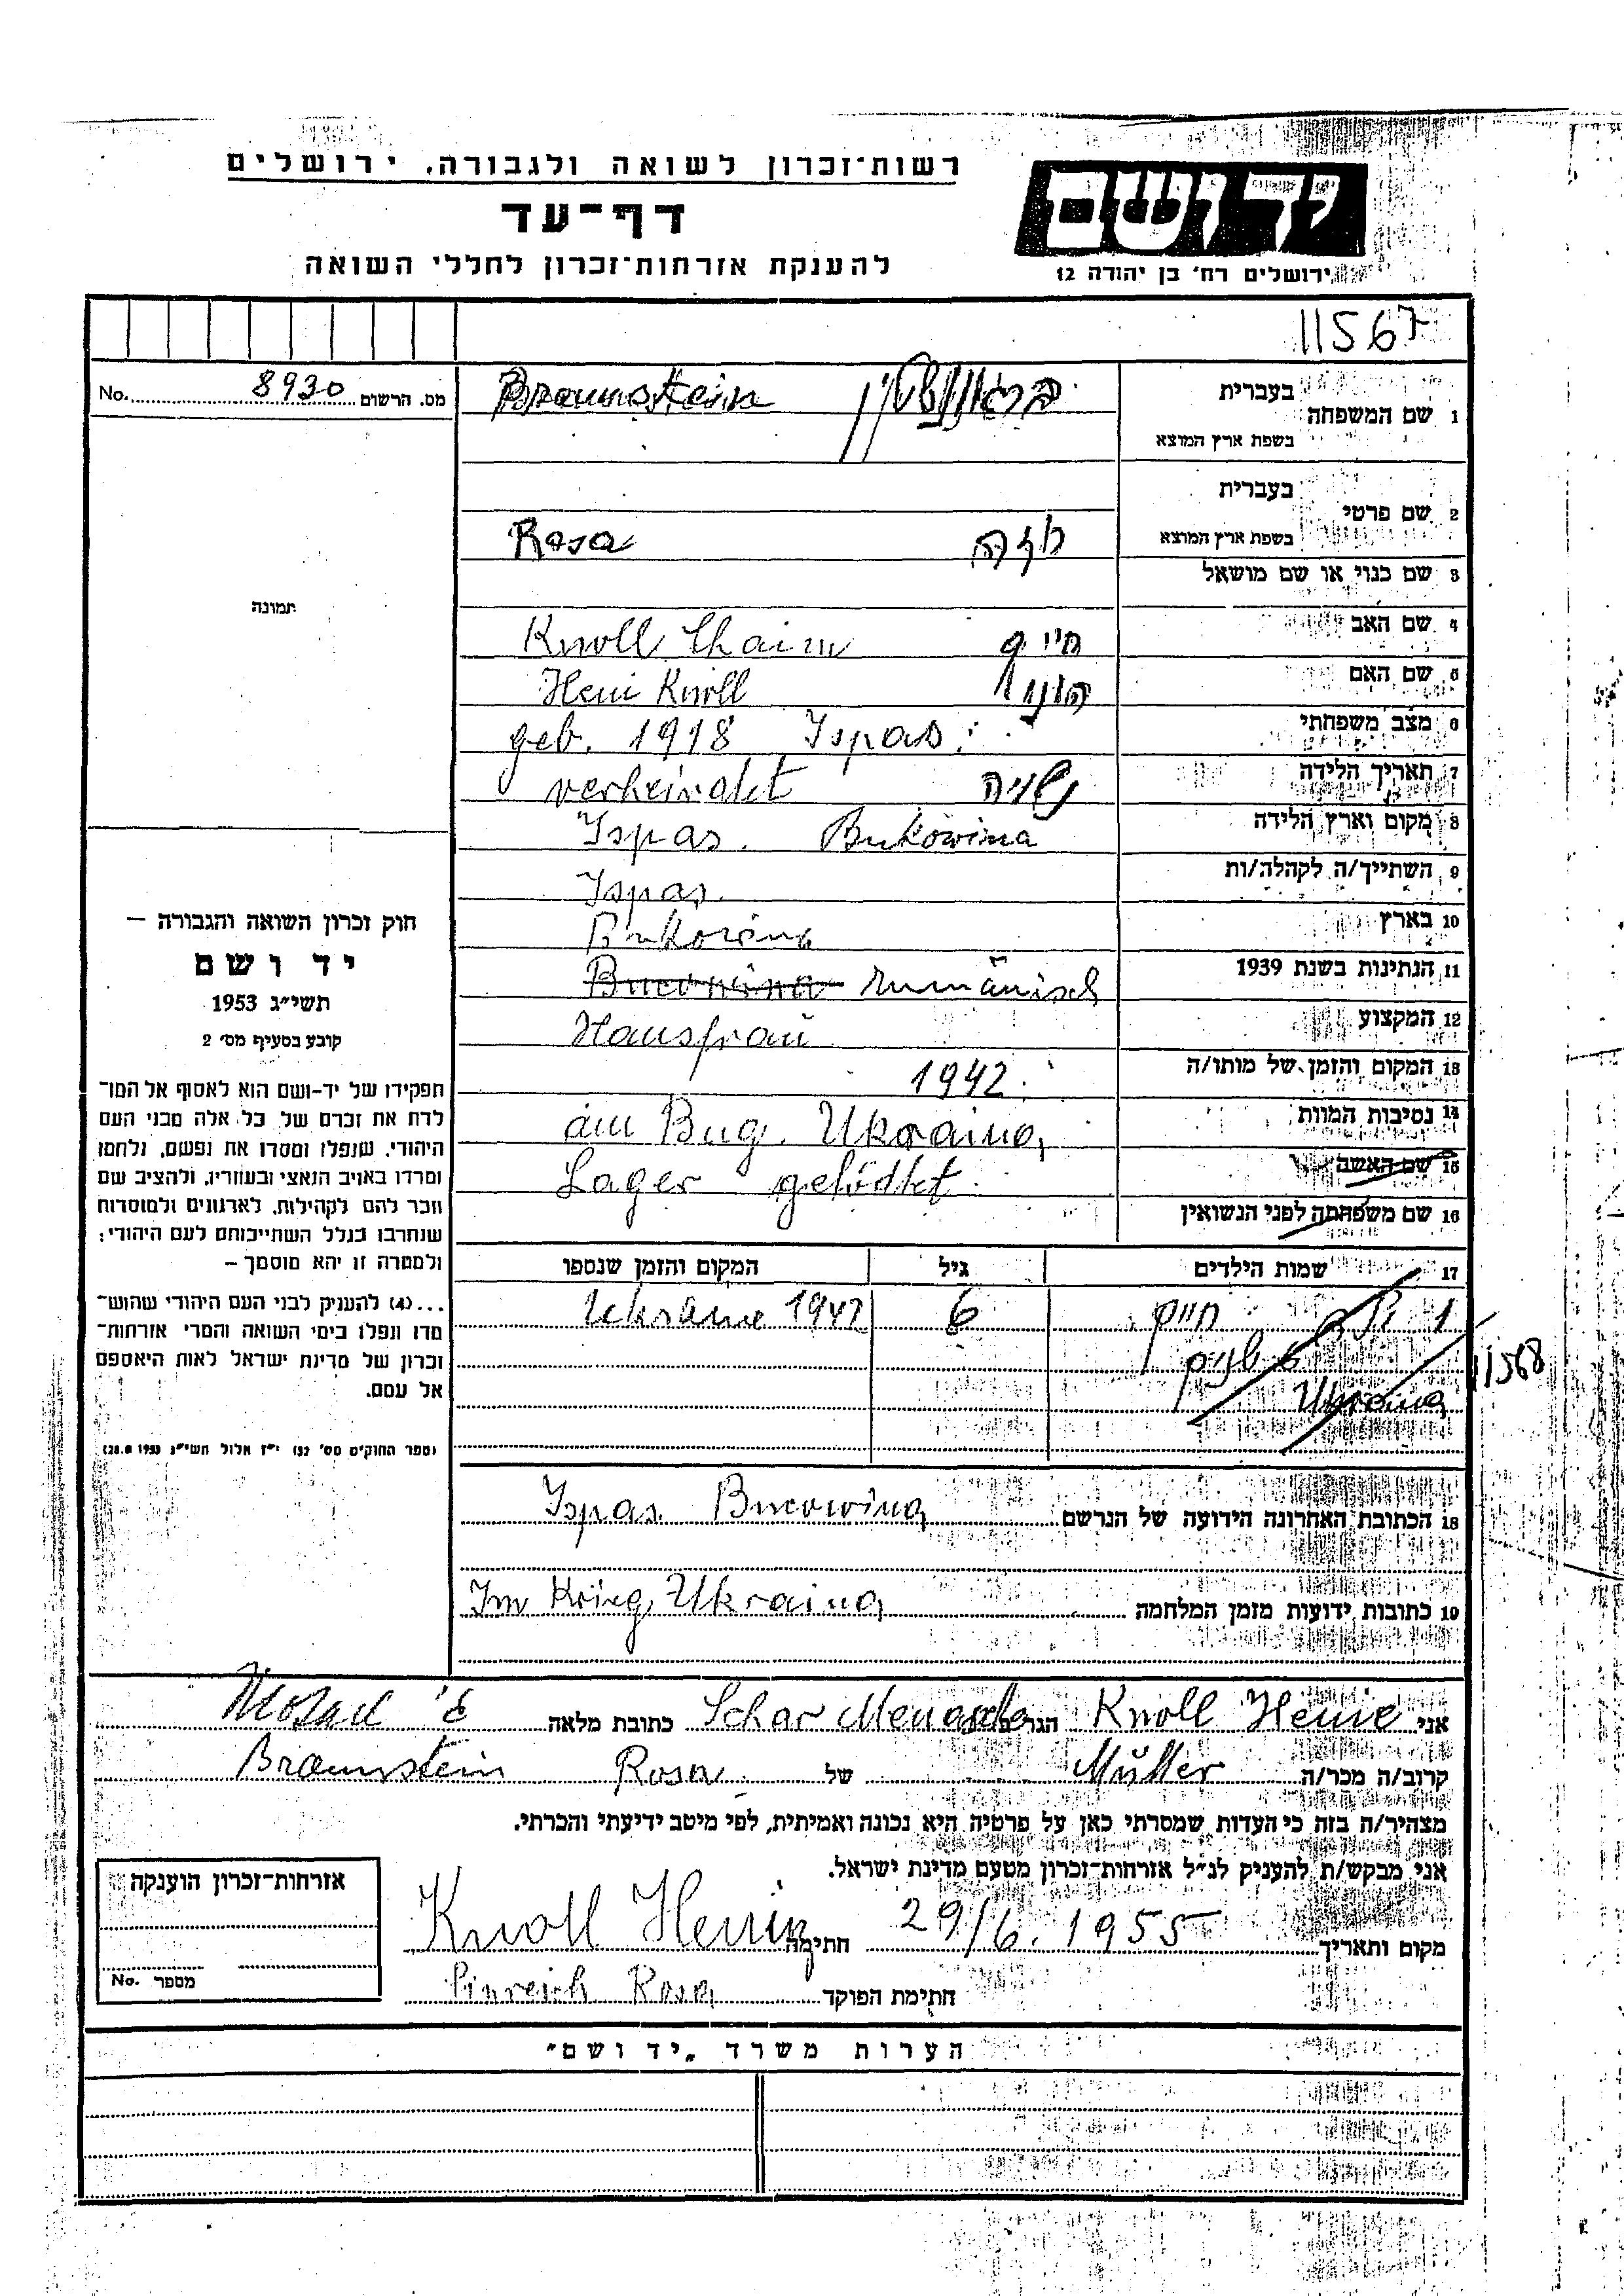 רשות־זכרון לשואה ולגבורה, ירושלים
דף־עד
להענקת אזרחות־זכרון לחללי השואה
יד ושם
ירושלים רח' בן יהודה 12
11567
No. 8930 מס. הרשום
1 שם המשפחה בעברית בראונשטיין Braunstein
בשפת ארץ המוצא
2 שם פרטי בעברית
בשפת ארץ המוצא רוזה Rosa
3 שם כנוי או שם מושאל
תמונה
4 שם האב חיים Knoll Chaim
5 שם האם Heni Knoll
6 מצב משפחתי geb. 1918 Ispas
7 תאריך הלידה נשויה verheiratet
8 מקום וארץ הלידה Ispas. Bukowina
9 השתייך/ה לקהלה/ות Ispas
10 בארץ Bukowina
11 הנתינות בשנת 1939 Bucovina rumänisch
12 המקצוע Hausfrau
13 המקום והזמן של מותו/ה 1942
14 נסיבות המוות am Bug. Ukraina
15 שם האשה Lager getödtet
16 שם משפחתה לפני הנשואין
חוק זכרון השואה והגבורה —
יד ושם
תשי״ג 1953
קובע בסעיף מס' 2
תפקידו של יד-ושם הוא לאסוף אל המו־
לדת את זכרם של כל אלה מבני העם
היהודי, שנפלו ומסרו את נפשם, נלחמו
ומרדו באויב הנאצי ובעוזריו, ולהציב שם
וזכר להם לקהילות, לארגונים ולמוסדות
שנחרבו בגלל השתייכותם לעם היהודי;
ולמטרה זו יהא מוסמך —
...(4) להעניק לבני העם היהודי שהוש־
מדו ונפלו בימי השואה והמרי אזרחות־
זכרון של מדינת ישראל לאות היאספם
אל עמם.
(ספר החוקים מס' 132 י״ז אלול תשי״ג 28.8.1953)
17 שמות הילדים גיל המקום והזמן שנספו
חיים 6 Ukraine 1942
Ukraina
11568
18 הכתובת האחרונה הידועה של הנרשם Ispas Bucowina
19 כתובות ידועות מזמן המלחמה Im Krieg Ukraina
אני Knoll Henie הגר ב Schar Menasche כתובת מלאה
קרוב/ה מכר/ה Mutter של Rosa Braunstein
מצהיר/ה בזה כי העדות שמסרתי כאן על פרטיה היא נכונה ואמיתית, לפי מיטב ידיעתי והכרתי.
אני מבקש/ת להעניק לנ״ל אזרחות־זכרון מטעם מדינת ישראל.
מקום ותאריך 29/6.1955 חתימה Knoll Henie
חתימת הפוקד Rosa
אזרחות־זכרון הוענקה
No. מספר
הערות משרד „יד ושם״